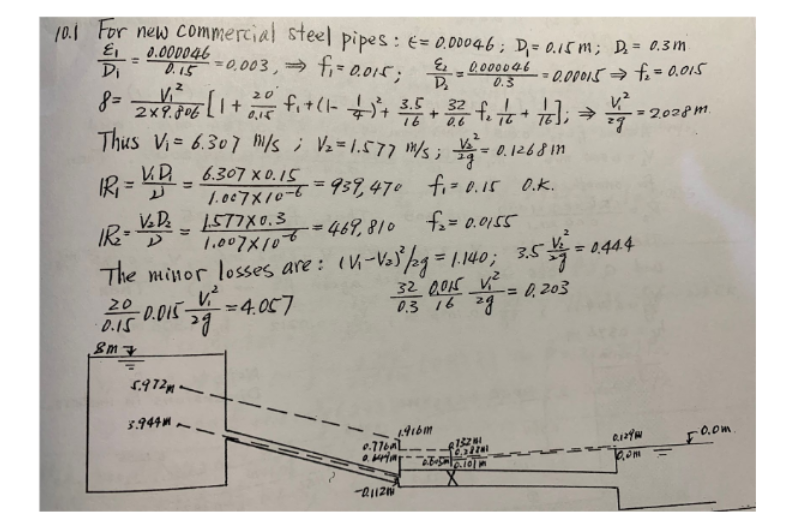 10.1 For new commercial steel pipes: ε= 0.00046; D₁= 0.15m; D₂= 0.3m
ε₁/D₁ = 0.000046/0.15 = 0.003, ⇒ f₁= 0.015; ε₂/D₂ = 0.000046/0.3 = 0.00015 ⇒ f₂= 0.015
8= V₁²/2×9.806 [1 + 20/0.15 f₁+(1- 1/4)²+ 3.5/16 + 32/0.6 f₂ 1/16 + 1/16]; ⇒ V₁²/2g = 2.028m.
Thus V₁= 6.307 m/s ; V₂=1.577 m/s; V₂²/2g = 0.1268m
IR₁ = V₁D₁/ν = 6.307×0.15/1.007×10⁻⁶ = 939,470 f₁= 0.15 O.K.
IR₂= V₂D₂/ν = 1.577×0.3/1.007×10⁻⁶ = 469,810 f₂= 0.0155
The minor losses are: (V₁-V₂)²/2g = 1.140; 3.5 V₂²/2g = 0.444
20/0.15 0.015 V₁²/2g = 4.057 32/0.3 0.015/16 V₁²/2g = 0.203
8m
5.972m
3.944m
1.916m
0.776m
0.649m
0.332m
0.605m
0.101m
0.129m
0.0m
0.0m.
-0.112m